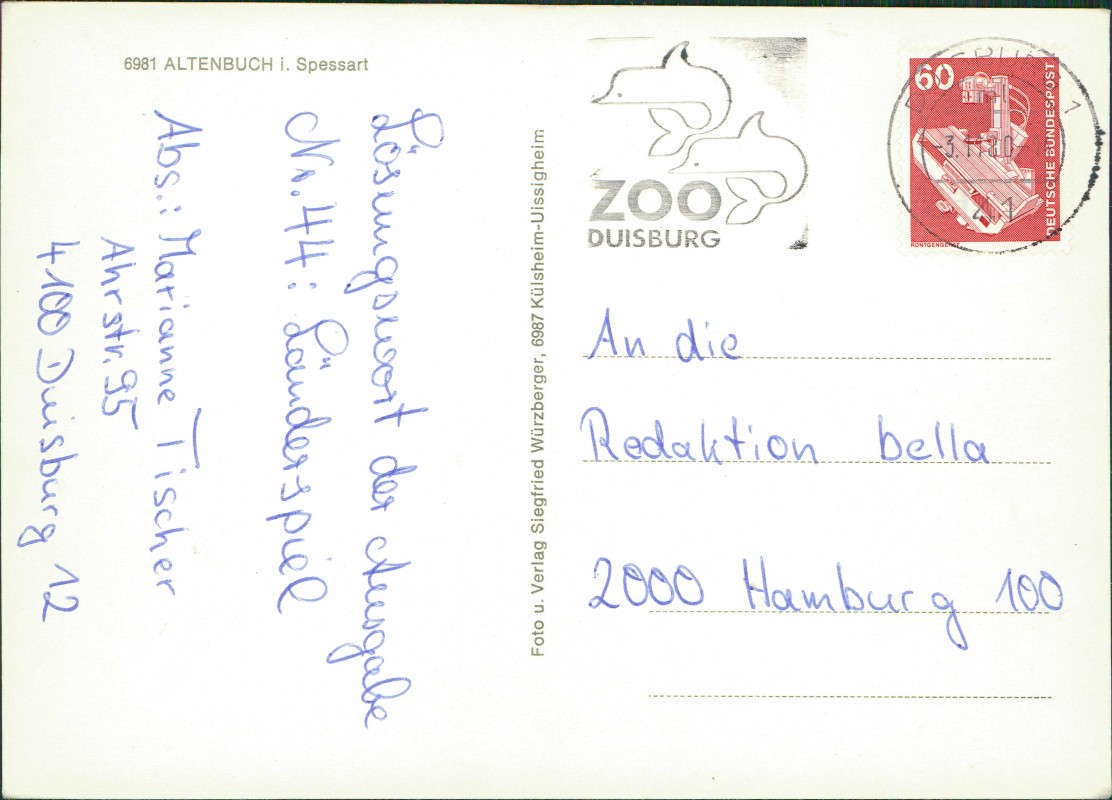 6981 ALTENBUCH i. Spessart
Lösungswort der Ausgabe
Nr. 44: Länderspiel
Abs.: Marianne Tischer
Ahrstr. 95
4100 Duisburg 12
Foto u. Verlag Siegfried Würzberger, 6987 Külsheim-Uissigheim
ZOO
DUISBURG
60
DEUTSCHE BUNDESPOST
RÖNTGENGERÄT
-3.11.80
An die
Redaktion bella
2000 Hamburg 100